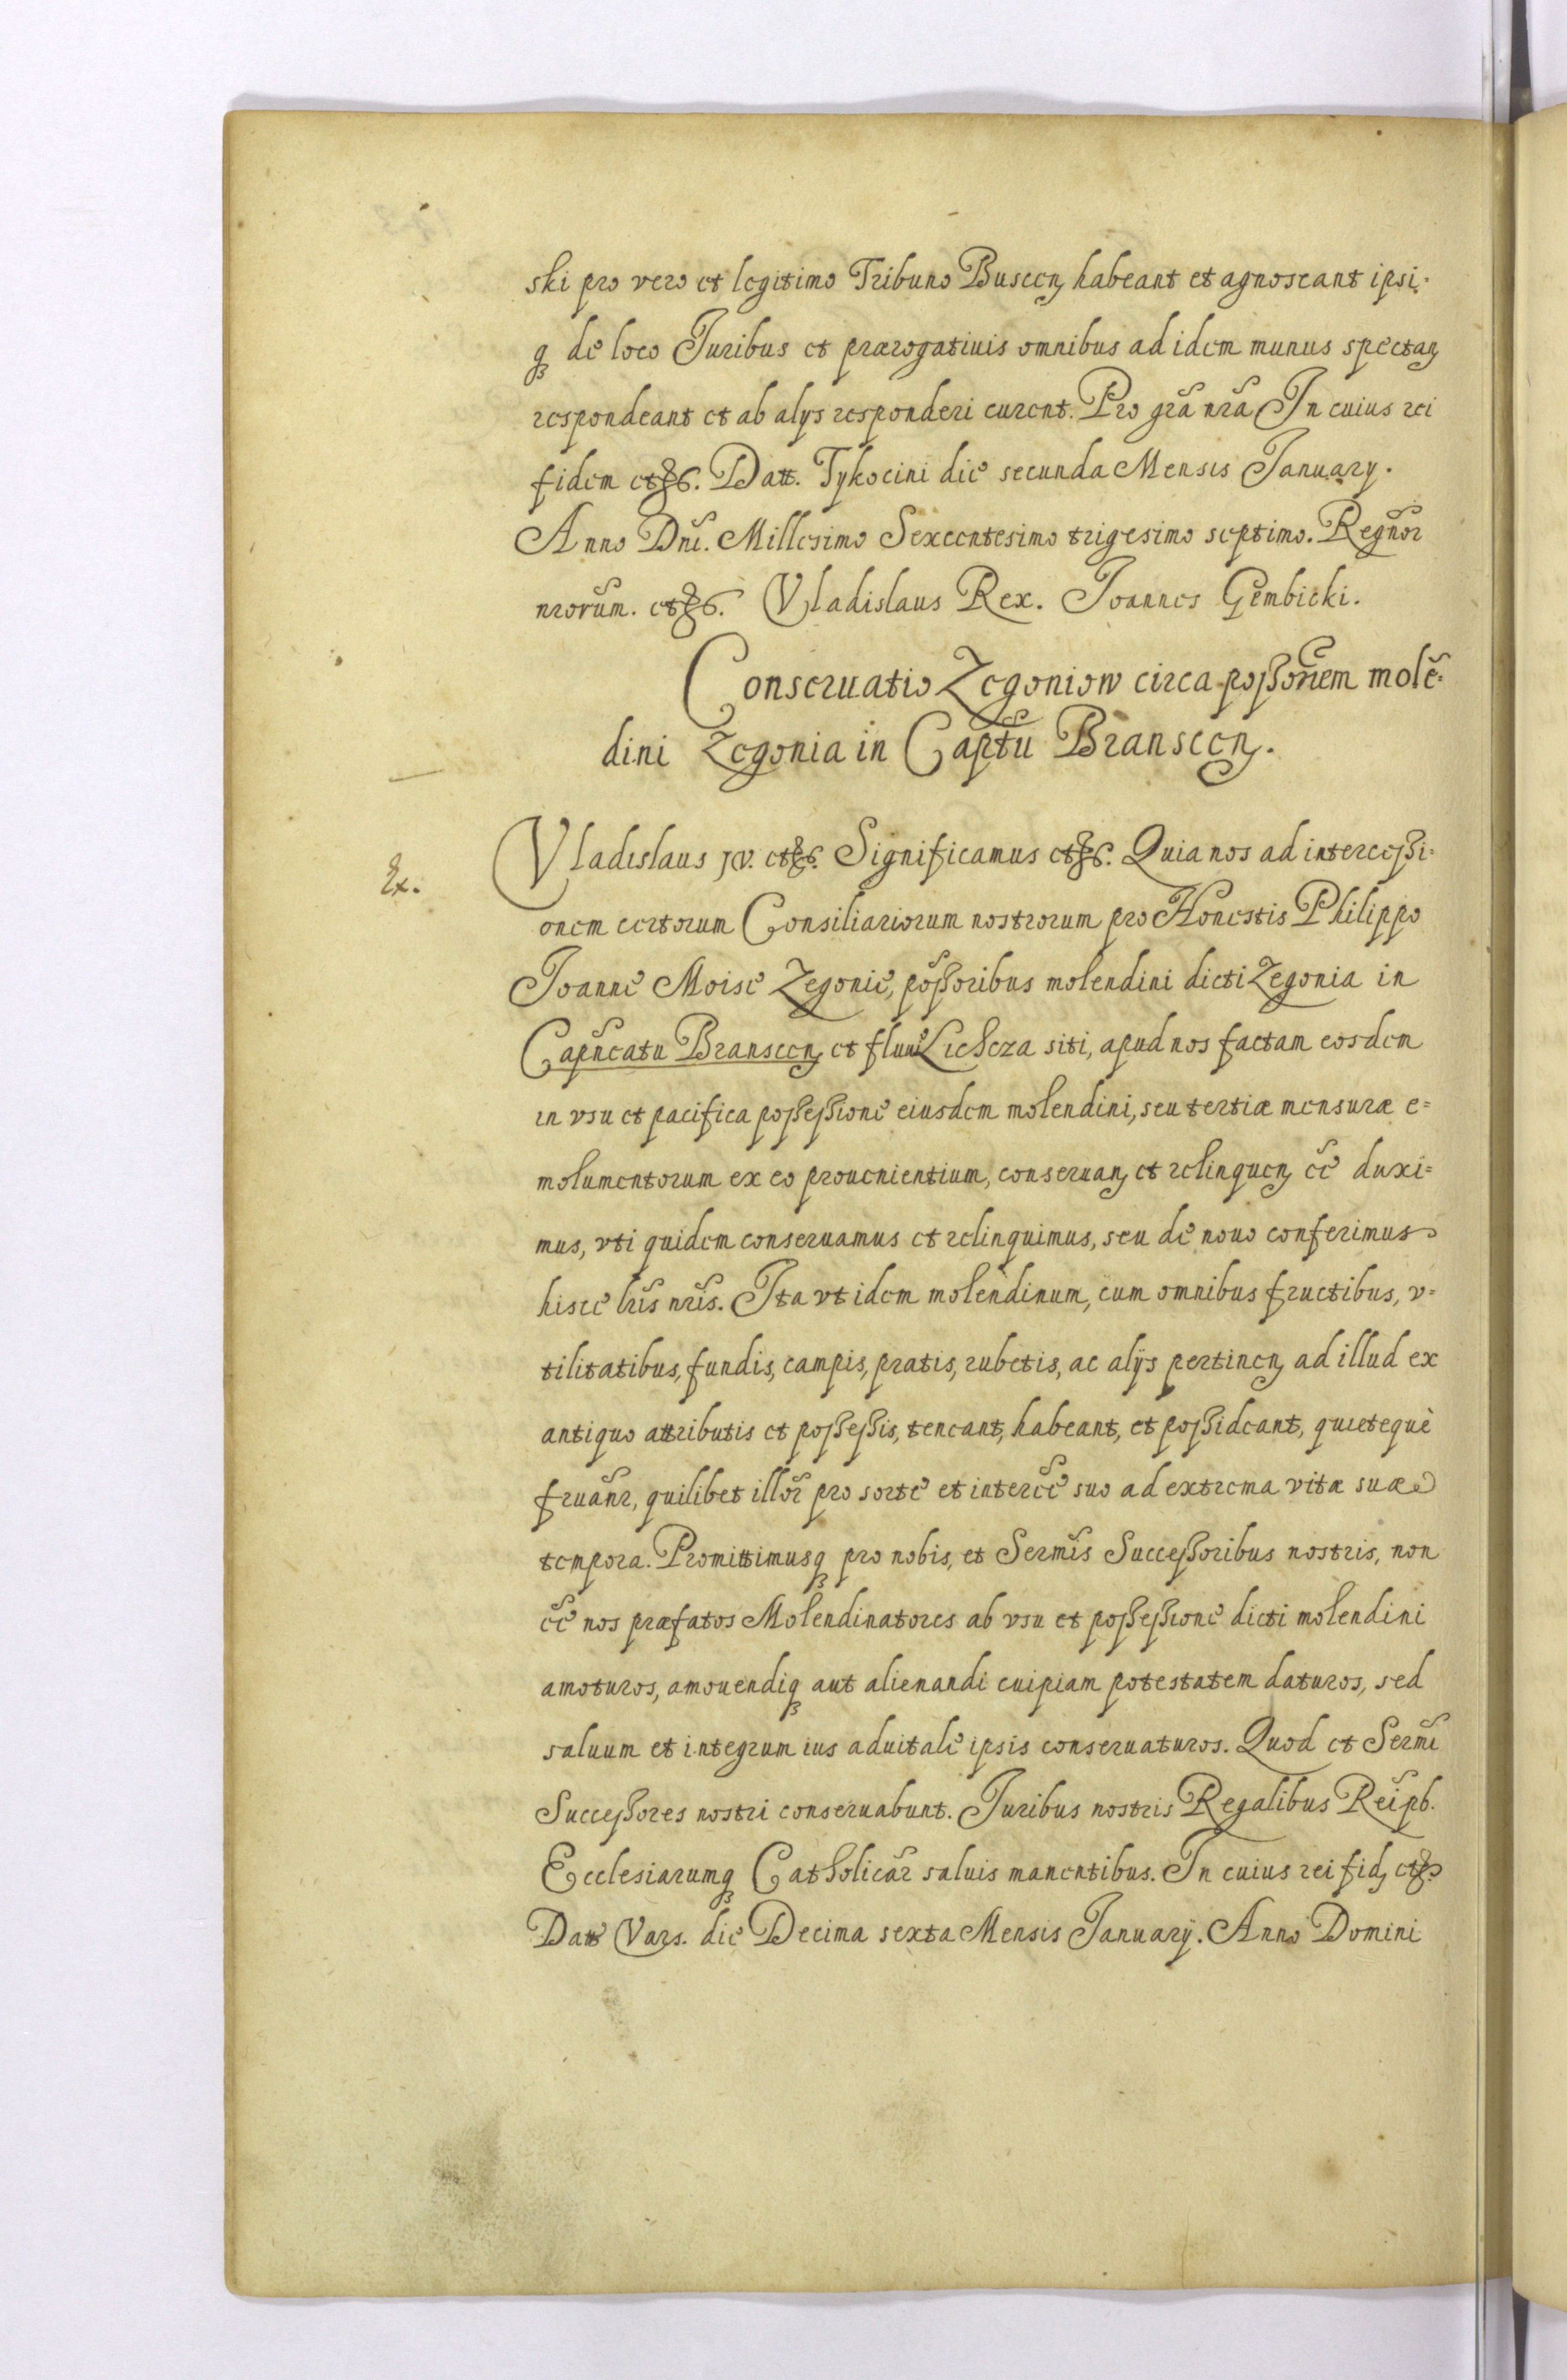 ski pro vero et legitimo Tribuno Buscen habeant et agnoscant ipsi-
q de loco Juribus et prærogatiuis omnibus ad idem munus spectan
respondeant et ab alys responderi curent. Pro gra nra In cuius rei
fidem etc. Datt. Tykocini die secunda Mensis January.
Anno Dni. Millesimo Sexcentesimo trigesimo septimo. Regnor
nrorum. etc. Vladislaus Rex. Joannes Gembicki.
Conseruatio Zegoniow circa possionem mole=
dini Zegonia in Captu Branscen.
Ex.
Vladislaus IV. etc. Significamus etc. Quia nos ad intercessi=
onem certorum Consiliariorum nostrorum pro Honestis Philippo
Joanne Moise Zegonie, possoribus molendini dicti Zegonia in
Capneatu Branscen et fluui Lichcza siti, apud nos factam eosdem
in vsu et pacifica possessione eiusdem molendini, seu tertiæ mensuræ e=
molumentorum ex eo prouenientium, conseruan et relinquen ee duxi=
mus, vti quidem conseruamus et relinquimus, seu de nouo conferimus
hisce lris nris. Ita vt idem molendinum, cum omnibus fructibus, v=
tilitatibus, fundis, campis, pratis, rubetis, ac alijs pertinen ad illud ex
antiquo attributis et possessis, teneant, habeant, et possideant, quietequè
fruanr, quilibet illor pro sorte et interee suo ad extrema vitæ suæ
tempora. Promittimusq pro nobis, et Sermis Successoribus nostris, non
ee nos præfatos Molendinatores ab vsu et possessione dicti molendini
amoturos, amouendiq aut alienandi cuipiam potestatem daturos, sed
saluum et integrum ius aduitale ipsis conseruaturos. Quod et Sermi
Successores nostri conseruabunt. Juribus nostris Regalibus Reipb.
Ecclesiarumq Catholicar saluis manentibus. In cuius rei fid etc
Datt Vars. die Decima sexta Mensis Januarij. Anno Domini